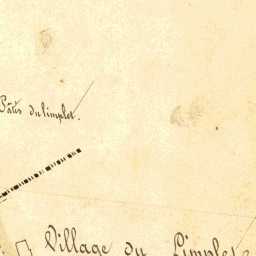 Pâtis du limplet.
Village du Limplet